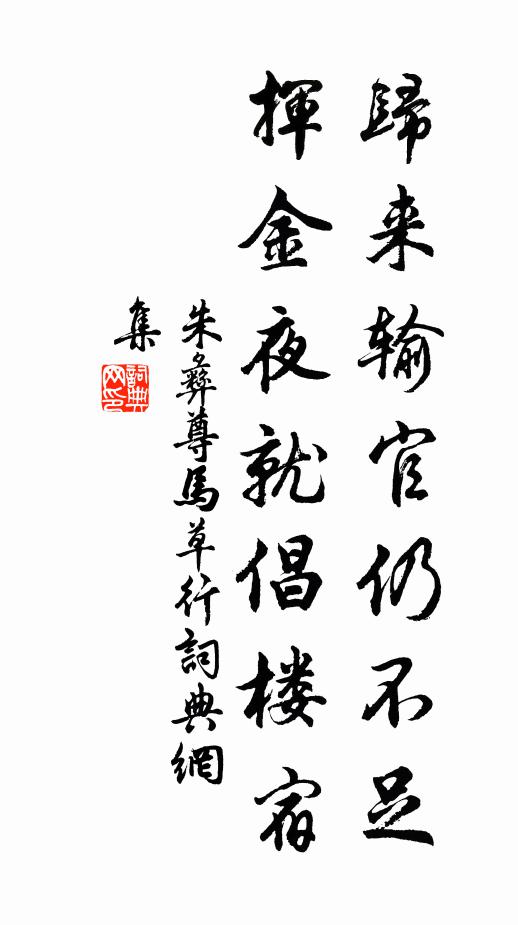 歸来输官仍不足
揮金夜就倡楼宿
朱彝尊馬草行詞典網
集
詞典
网印